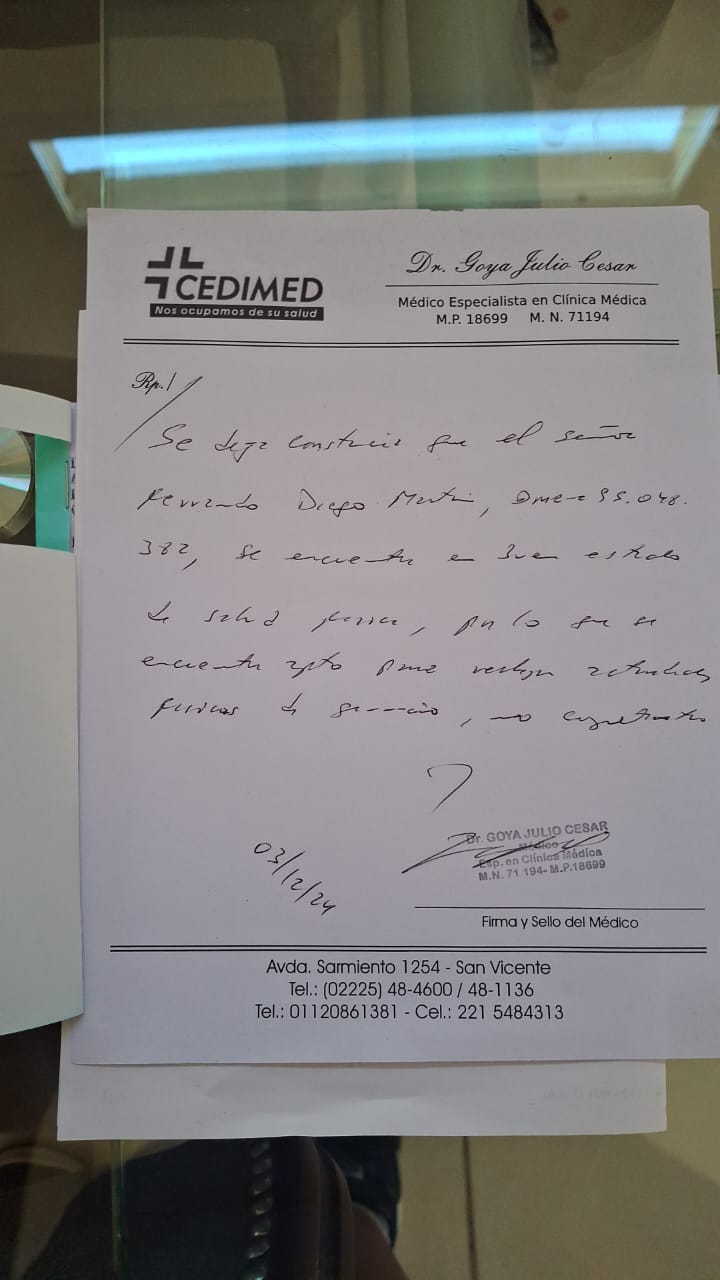 CEDIMED
Nos ocupamos de su salud
Dr. Goya Julio Cesar
Médico Especialista en Clínica Médica
M.P. 18699 M. N. 71194
Rp./
Se deja constancia que el señor
Diego Martin, 048.
382, se encuentra en buen estado
de salud, por lo que se
encuentra apto para realizar actividades
físicas de gimnasio, no
03/12/24
Dr. GOYA JULIO CESAR
Médico
Esp. en Clínica Médica
M.N. 71 194- M.P.18699
Firma y Sello del Médico
Avda. Sarmiento 1254 - San Vicente
Tel.: (02225) 48-4600 / 48-1136
Tel.: 01120861381 - Cel.: 221 5484313